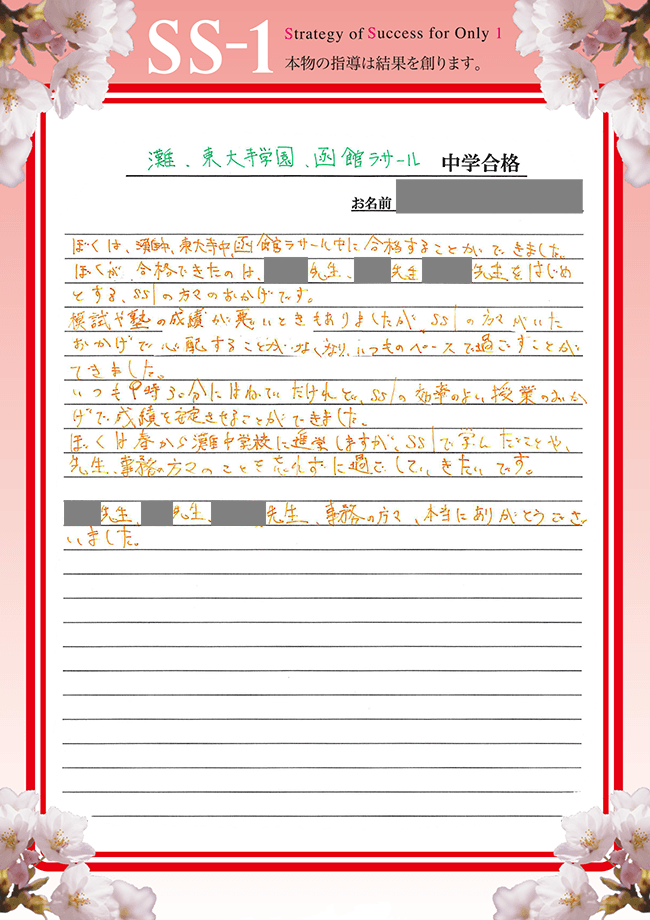 SS-1
Strategy of Success for Only 1
本物の指導は結果を創ります。
灘、東大寺学園、函館ラサール 中学合格
お名前
ぼくは、灘中、東大寺中、函館ラサール中に合格することができました。
ぼくが、合格できたのは、 先生、 先生 先生をはじめ
とする、SS1の方々のおかげです。
模試や塾の成績が悪いときもありましたが、SS1の方々がいた
おかげで心配することがなくなり、いつものペースで過ごすことが
できました。
いつも9時30分にはねていたけれど、SS1の効率のよい授業のおか
げで成績を安定させることができました。
ぼくは春から灘中学校に進学しますが、SS1で学んだことや、
先生、事務の方々のことを忘れずに過ごしていきたいです。
先生、 先生、 先生、事務の方々、本当にありがとうござ
いました。